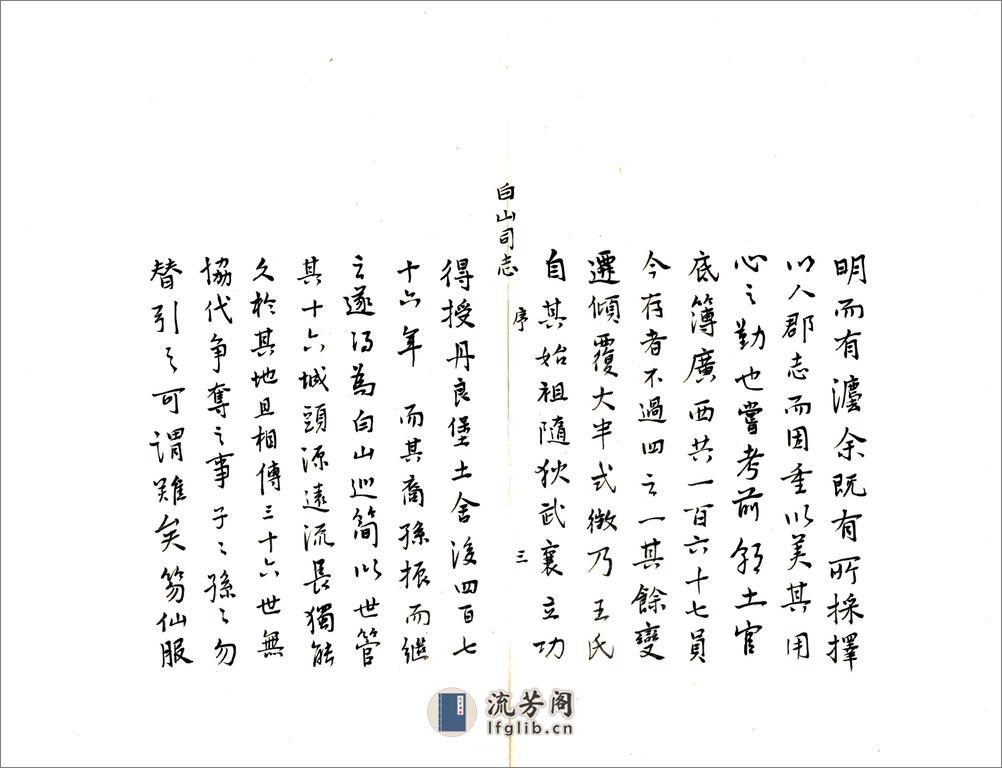 明而有瀍余既有所採擇
以入郡志而因重以美其用
心之勤也嘗考前朝土官
底簿廣西共一百六十七員
今存者不過四之一其餘變
遷傾覆大半式微乃王氏
自其始祖隨狄武襄立功
白山司志 序 三
得授丹良堡土舍後四百七
十六年而其裔孫振而繼
之遂得為白山巡簡以世管
其十六城頭源遠流長獨能
久於其地且相傳三十六世無
協代爭奪之事子〻孫〻勿
替引之可謂難矣芴仙服
流芳阁
lfglib.cn